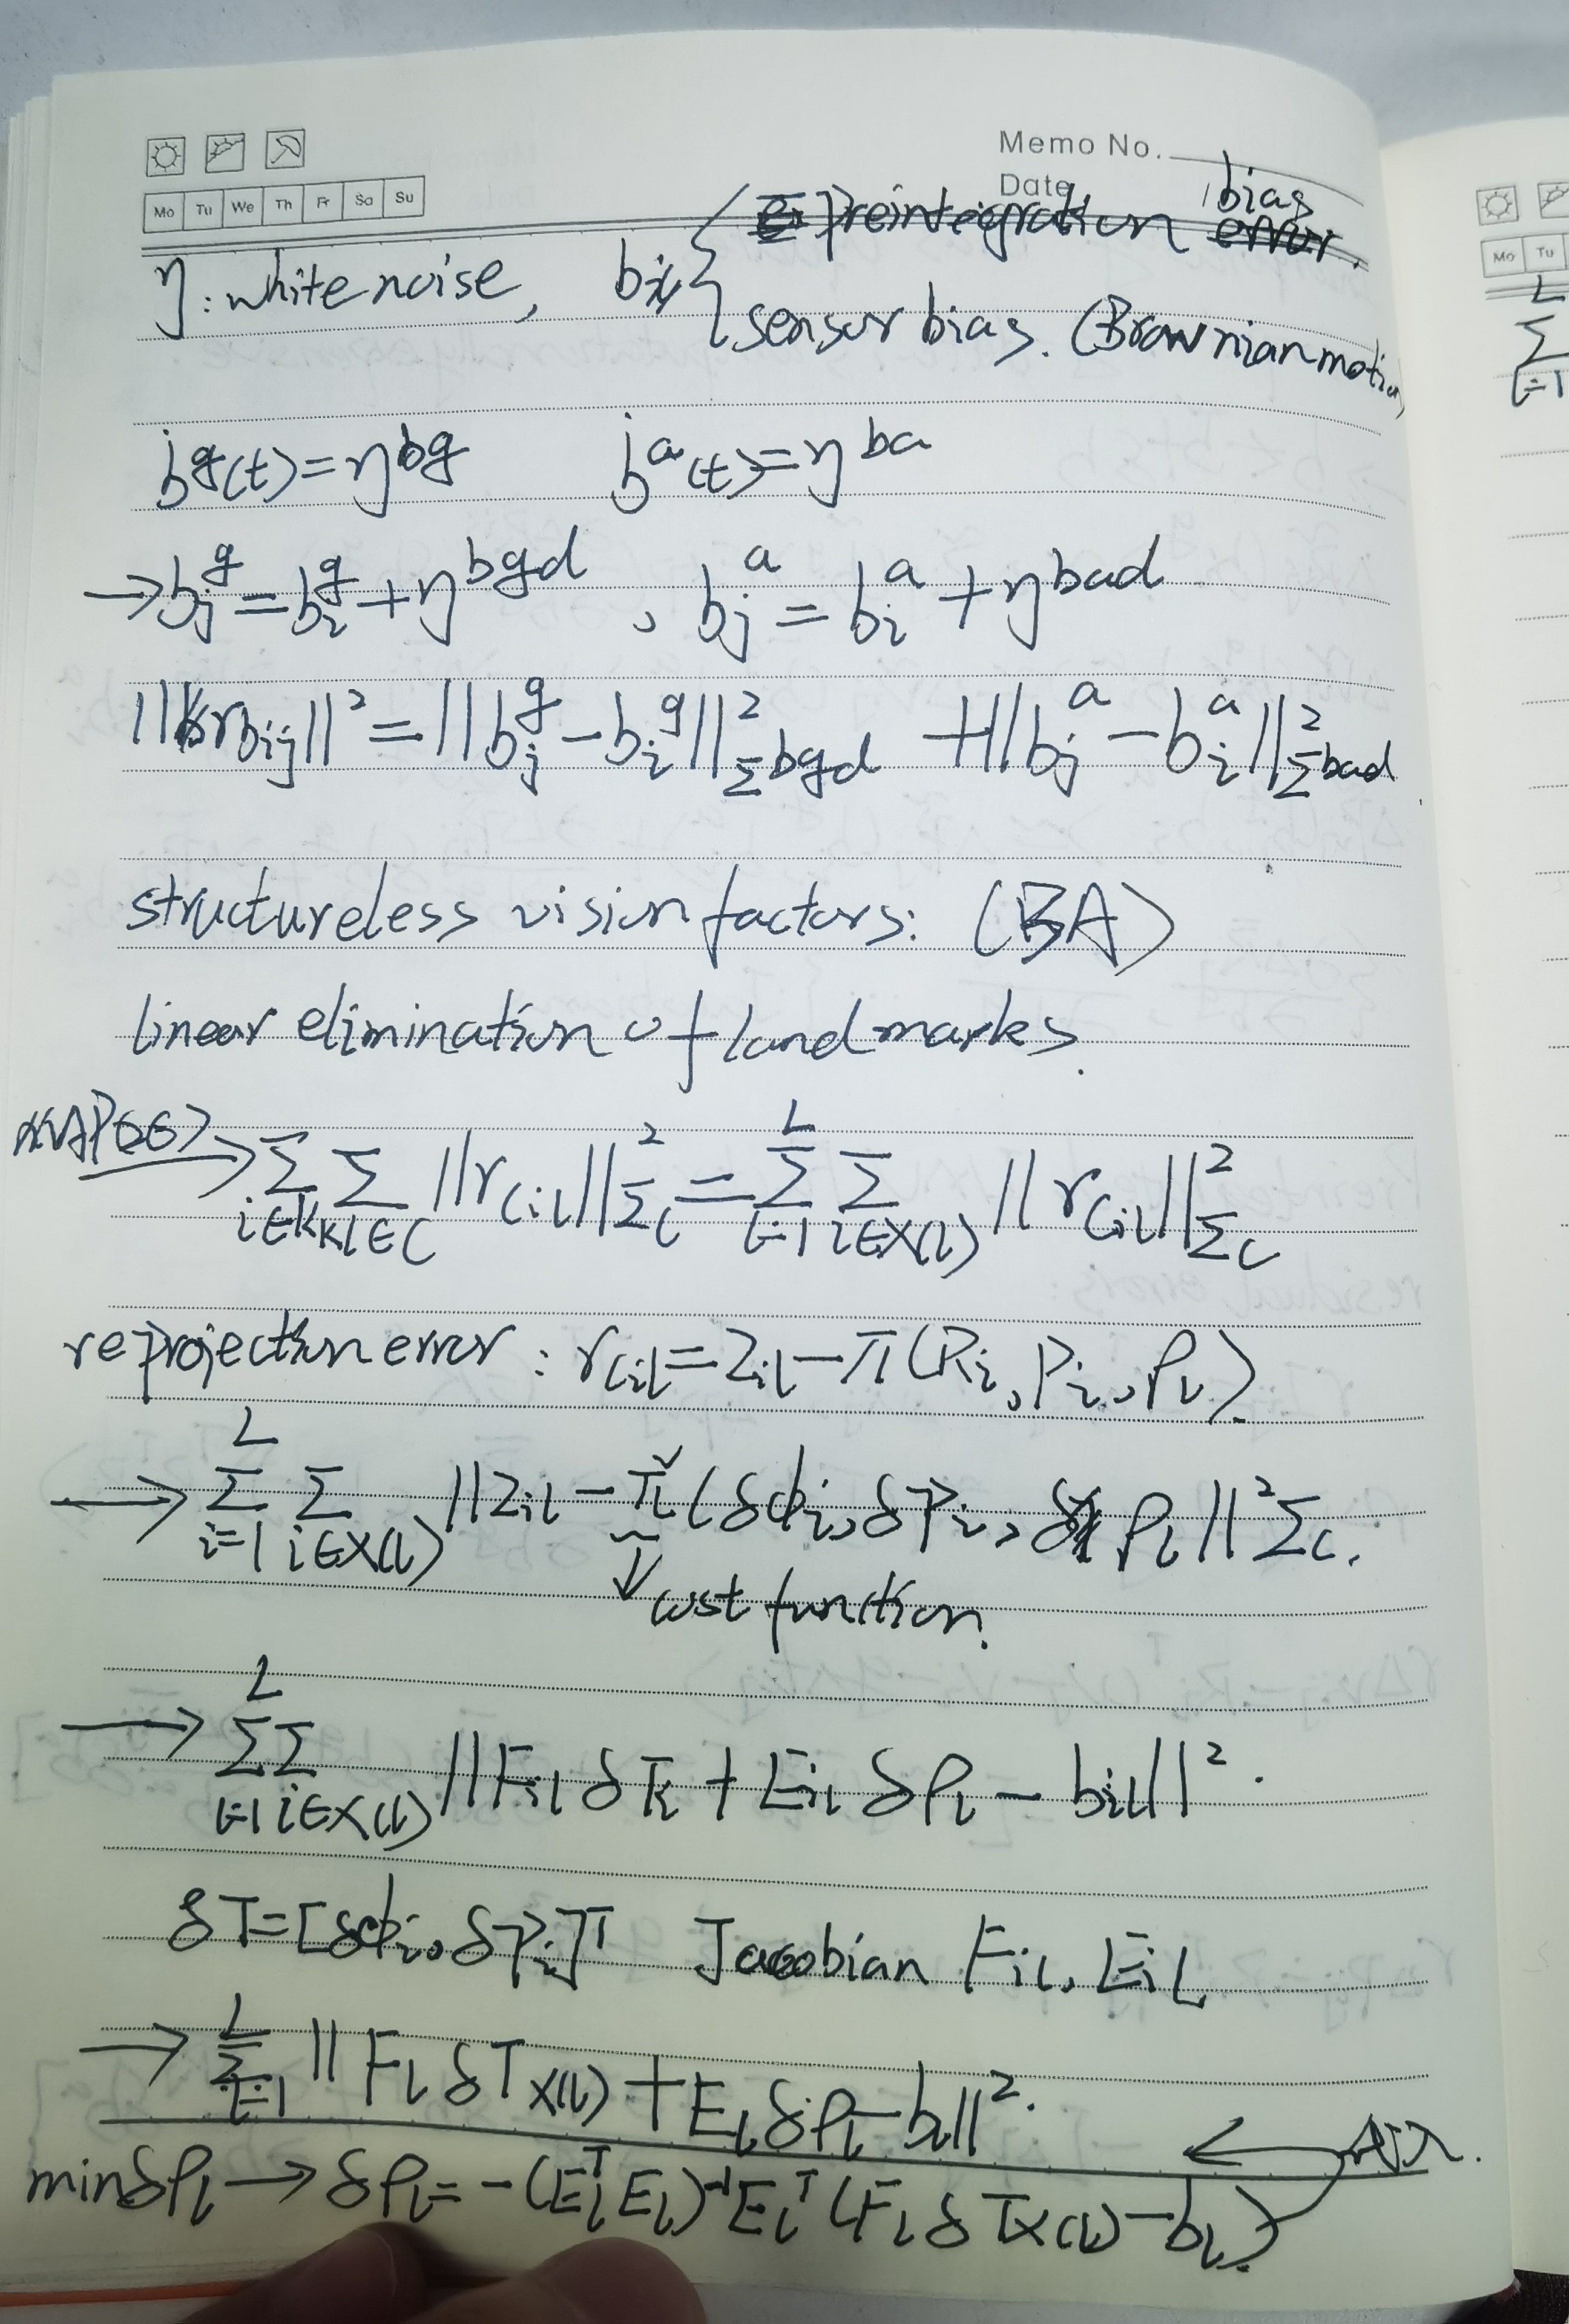 Memo No.
Date
Mo Tu We Th Fr Sa Su
preintegration bias
η: white noise, b {
sensor bias. (Brownian motion)
ḃᵍ(t) = η^bg   ḃᵃ(t) = η^ba
→ b_j^g = b_i^g + η^bgd , b_j^a = b_i^a + η^bad
||r_bij||² = ||b_j^g − b_i^g||²_Σbgd + ||b_j^a − b_i^a||²_Σbad
structureless vision factors: (BA)
linear elimination of landmarks.
MAP(26) → Σ_{i∈Kk} Σ_{l∈C} ||r_Cil||²_ΣC = Σ_{l=1}^L Σ_{i∈X(l)} ||r_Cil||²_ΣC
reprojection error : r_Cil = Z_il − π(R_i, P_i, ρ_l).
→ Σ_{i=1}^L Σ_{i∈X(l)} ||Z_il − π̌(δϕ_i, δP_i, δρ_l||² Σ_C.
↓ cost function.
→ Σ_{l=1}^L Σ_{i∈X(l)} ||F_il δT_i + E_il δρ_l − b_il||².
δT = [δϕ_i, δP_i]^T   Jacobian F_il, E_il
→ Σ_{l=1}^L ||F_l δT_X(l) + E_l δρ_l − b_l||².
代入.
min δρ_l → δρ_l = −(E_l^T E_l)^-1 E_l^T (F_l δT_X(l) − b_l)
Mo Tu
L
Σ
l=1